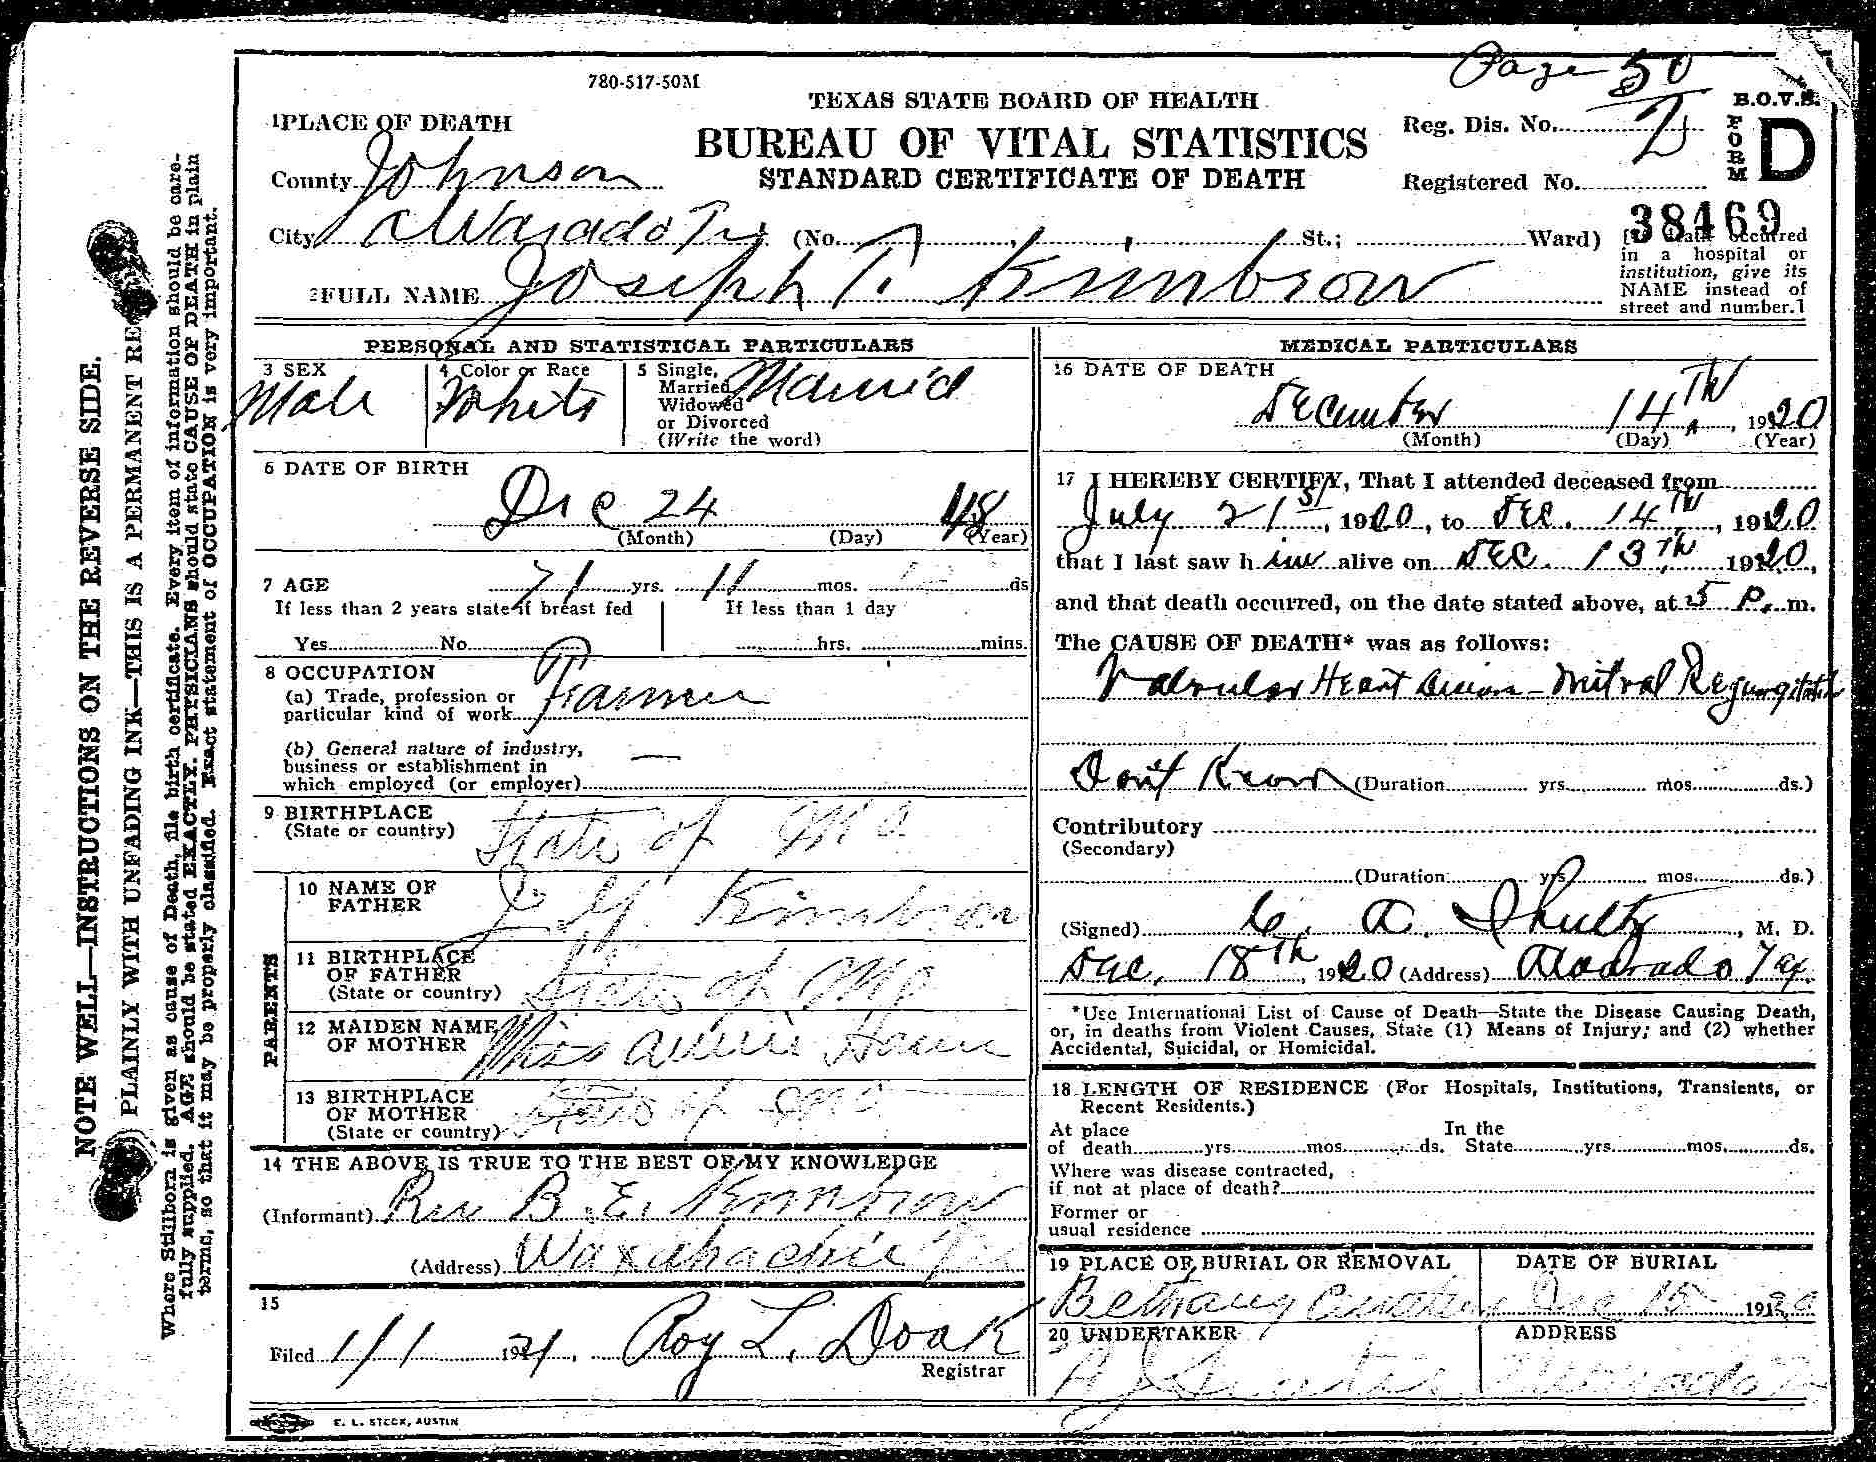 Page 50
780-517-50M
TEXAS STATE BOARD OF HEALTH
B.O.V.S.
FORM D
1 PLACE OF DEATH
BUREAU OF VITAL STATISTICS
Reg. Dis. No. 2
County Johnson
STANDARD CERTIFICATE OF DEATH
Registered No.
38469
City Alvarado Tx. (No. St.; Ward)
[If death occurred
in a hospital or
institution, give its
NAME instead of
street and number.]
2 FULL NAME Joseph T. Kimbrow
PERSONAL AND STATISTICAL PARTICULARS
3 SEX
Male
4 Color or Race
White
5 Single,
Married
Widowed
or Divorced
(Write the word)
Married
6 DATE OF BIRTH
Dec 24 48
(Month) (Day) (Year)
7 AGE
71 yrs. 11 mos. ds
If less than 2 years state if breast fed
Yes No
If less than 1 day
hrs. mins.
8 OCCUPATION
(a) Trade, profession or
particular kind of work Farmer
(b) General nature of industry,
business or establishment in
which employed (or employer) —
9 BIRTHPLACE
(State or country) State of
PARENTS
10 NAME OF
FATHER
J. Kimbrow
11 BIRTHPLACE
OF FATHER
(State or country) State of
12 MAIDEN NAME
OF MOTHER
Miss
13 BIRTHPLACE
OF MOTHER
(State or country) State of
14 THE ABOVE IS TRUE TO THE BEST OF MY KNOWLEDGE
(Informant) Rev B. E. Kimbrow
(Address) Waxahachie Tex
15
Filed 1/1 1921. Roy L. Doak
Registrar
E. L. STECK, AUSTIN
MEDICAL PARTICULARS
16 DATE OF DEATH
December 14TH, 1920
(Month) (Day) (Year)
17 I HEREBY CERTIFY, That I attended deceased from
July 21st, 1920, to Dec. 14TH, 1920
that I last saw him alive on DEC. 13TH, 1920,
and that death occurred, on the date stated above, at 5 P. m.
The CAUSE OF DEATH* was as follows:
Valvular Heart Disease - Mitral Regurgitation
Don't Know (Duration yrs. mos. ds.)
Contributory
(Secondary)
(Duration yrs. mos. ds.)
(Signed) C. A. Shultz, M. D.
Dec. 18TH, 1920 (Address) Alvarado Tex.
*Use International List of Cause of Death—State the Disease Causing Death,
or, in deaths from Violent Causes, State (1) Means of Injury; and (2) whether
Accidental, Suicidal, or Homicidal.
18 LENGTH OF RESIDENCE (For Hospitals, Institutions, Transients, or
Recent Residents.)
At place In the
of death yrs. mos. ds. State yrs. mos. ds.
Where was disease contracted,
if not at place of death?
Former or
usual residence
19 PLACE OF BURIAL OR REMOVAL
Bethany Cemetery
DATE OF BURIAL
Dec 15 1920
20 UNDERTAKER
ADDRESS
Alvarado
NOTE WELL—INSTRUCTIONS ON THE REVERSE SIDE.
PLAINLY WITH UNFADING INK—THIS IS A PERMANENT RE
Where Stillborn is given as cause of Death, file birth certificate. Every item of information should be care-
fully supplied. AGE should be stated EXACTLY. PHYSICIANS should state CAUSE OF DEATH in plain
terms, so that it may be properly classified. Exact statement of OCCUPATION is very important.